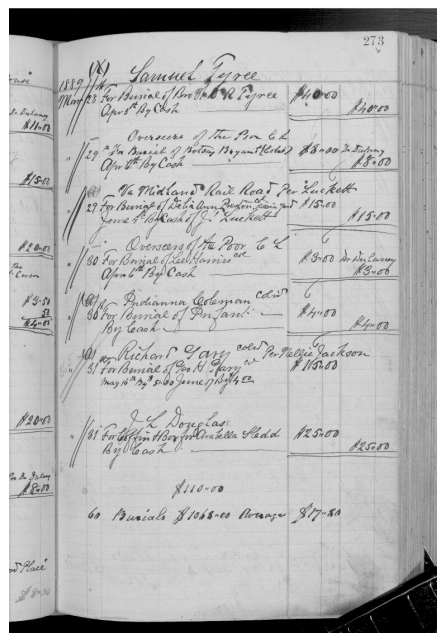 273
(X) Samuel Tyree
1889
Mar 28 For Burial of Bro R Tyree $40.00
Apr 8th By Cash $40.00
Overseers of the Poor C L
" 29 For Burial of Botany Bryant (Col'd) $8.00 Dr Dulaney
Apr 6th By Cash $8.00
Va Midland Rail Road Per Luckett
29 For Burial of Delia Ann $15.00
June By Cash of J. Luckett $15.00
Overseers of the Poor C L
" 30 For Burial of Lee Harris col $3.00 Per Dulaney
Apr 6th By Cash $3.00
Indianna Coleman Col'd
30 For Burial of Infant $4.00
By Cash $4.00
Richard Gary Col'd Per Nellie Jackson
31 For Burial of Geo H Gary $15.00
May 16th By $5.00 June By $4.00
J L Douglas
" 31 For Coffin & Box for Aratella Sledd $25.00
By Cash $25.00
$110.00
60 Burials $1068.00 Average $17.80
$11.00
$15.00
$20.00
$3.50
$4.05
$20.00
$8.00
Place
$8.00